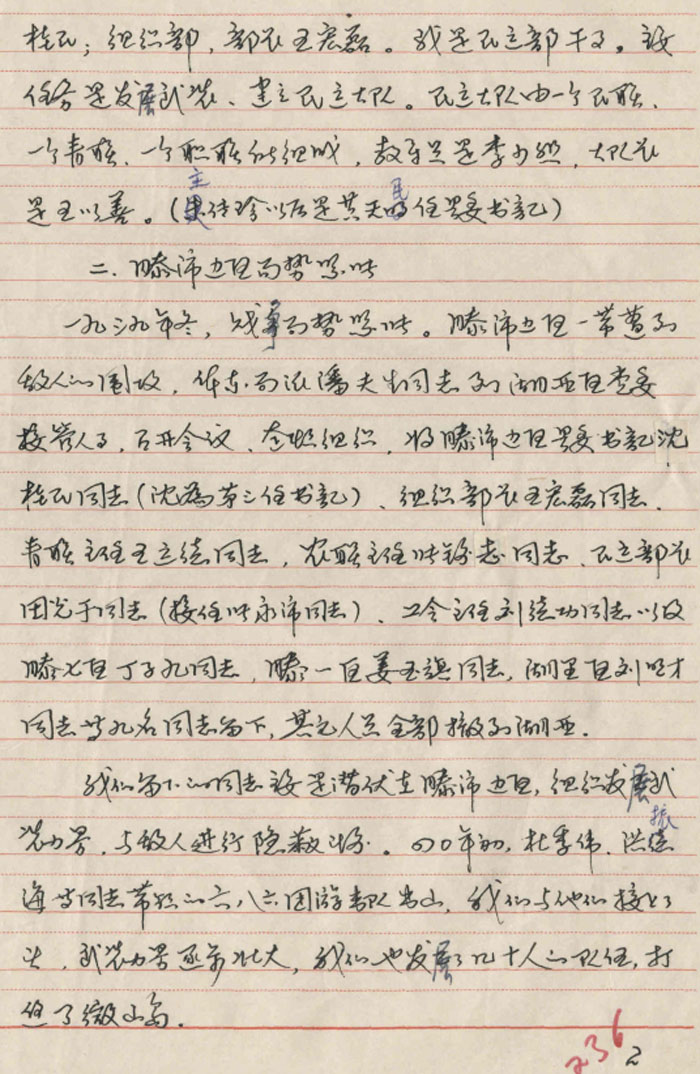 桂民；组织部，部长王宏磊。我是民运部干了。该
任务是发展武装、建立民运大队。民运大队由一个民联、
一个青联、一个职联所组成，教导员是李少然，大队长
是王以善。（朱传珍以后是其天的任县委书记）
主
民
二．滕沛边县局势恶化
一九三九年冬，战争局势恶化。滕沛边县一带遭到
敌人的围攻，华东局派潘夫生同志到湖西区党委
接管人子，召开会议，整顿组织，将滕沛边县县委书记沈
桂民同志（沈为第三任书记）、组织部长王宏磊同志、
青联主任王立德同志，农联主任张锡志同志、民运部长
田光于同志（接任张永沛同志）、工会主任刘德功同志以及
滕七区丁子九同志，滕一区姜玉旗同志，湖里区刘明才
同志等九名同志留下，其它人员全部撤到湖西．
我们留下的同志该是潜伏在滕沛边县，组织发展武
装力量，与敌人进行隐蔽斗争。四〇年初，杜季伟、洪
振
海等同志带领的六八六团游击队出山，我们与他们接了
头，武装力量逐步壮大，我们也发展了几十人的队伍，打
进了微山岛．
236
2